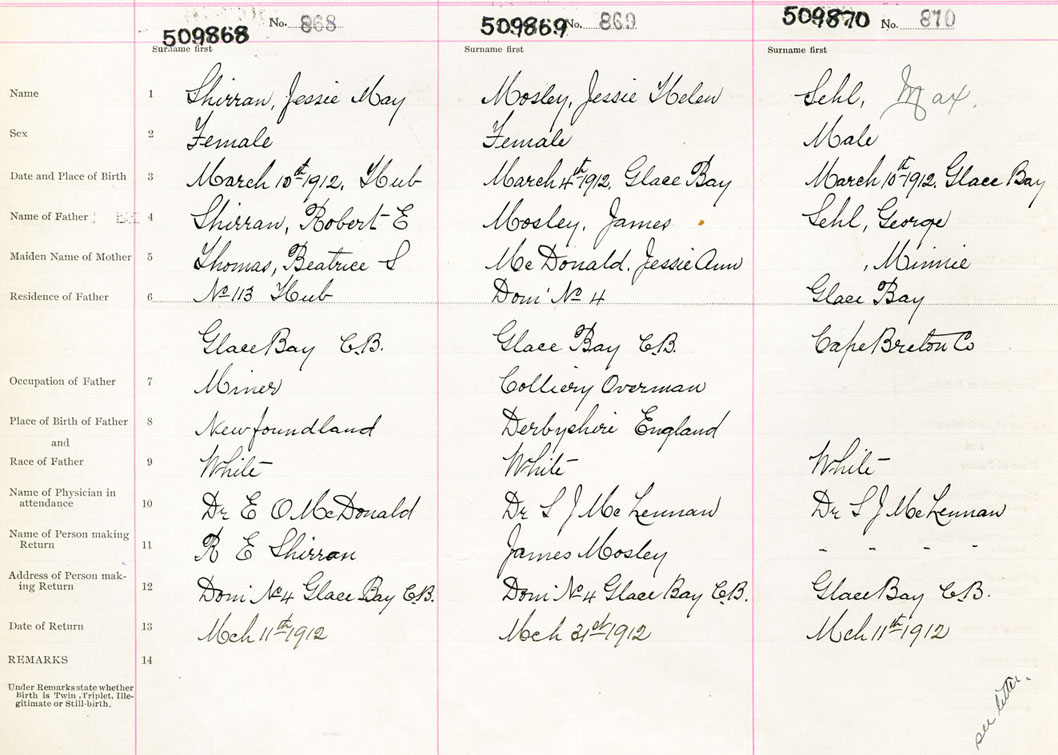 509868 No. 868 509869 No. 869 509870 No. 870
Surname first Surname first Surname first
Name 1 Shirran, Jessie May Mosley, Jessie Helen Sehl, Max.
Sex 2 Female Female Male
Date and Place of Birth 3 March 10th 1912. Hub March 4th 1912. Glace Bay March 10th 1912. Glace Bay
Name of Father 4 Shirran, Robert E Mosley, James Sehl, George
Maiden Name of Mother 5 Thomas, Beatrice S McDonald, Jessie Ann , Minnie
Residence of Father 6 No 113 Hub Dom' No 4 Glace Bay
Glace Bay C.B. Glace Bay C.B. Cape Breton Co
Occupation of Father 7 Miner Colliery Overman
Place of Birth of Father 8 Newfoundland Derbyshire England
and
Race of Father 9 White White White
Name of Physician in
attendance 10 Dr E O McDonald Dr S J McLennan Dr S J McLennan
Name of Person making
Return 11 R E Shirran James Mosley " " " " "
Address of Person mak-
ing Return 12 Dom No 4 Glace Bay C.B. Dom No 4 Glace Bay C.B. Glace Bay C.B.
Date of Return 13 Mch 11th 1912 Mch 21st 1912 Mch 11th 1912
REMARKS 14
Under Remarks state whether
Birth is Twin, Triplet, Ille-
gitimate or Still-birth.
see letter.